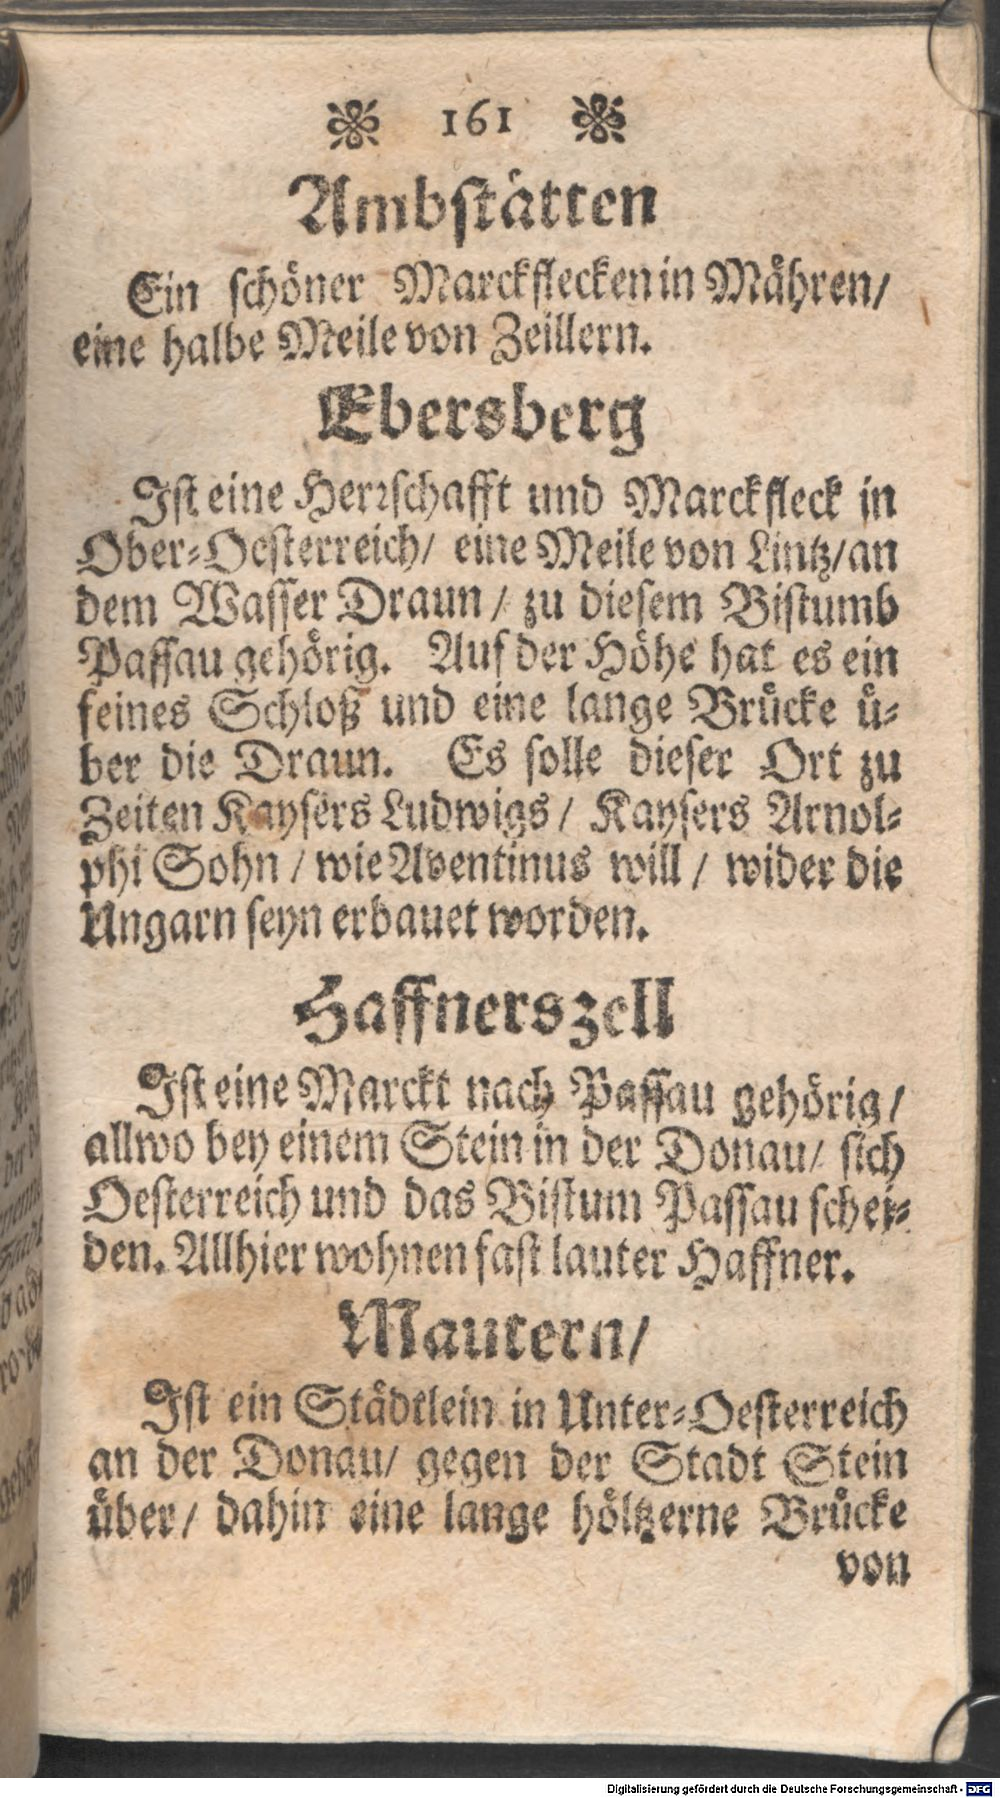 161
Ambstätten
Ein schöner Marckflecken in Mähren/
eine halbe Meile von Zeillern.
Ebersberg
Ist eine Herrschafft und Marckfleck in
Ober-Oesterreich/ eine Meile von Lintz/ an
dem Wasser Draun / zu diesem Bistumb
Passau gehörig. Auf der Höhe hat es ein
feines Schloß und eine lange Brücke ü-
ber die Draun. Es solle dieser Ort zu
Zeiten Kaysers Ludwigs / Kaysers Arnol-
phi Sohn / wie Aventinus will / wider die
Ungarn seyn erbauet worden.
Haffnerszell
Ist eine Marckt nach Passau gehörig/
allwo bey einem Stein in der Donau/ sich
Oesterreich und das Bistum Passau schei-
den. Allhier wohnen fast lauter Haffner.
Mautern/
Ist ein Städtlein in Unter-Oesterreich
an der Donau/ gegen der Stadt Stein
über/ dahin eine lange höltzerne Brücke
von
Digitalisierung gefördert durch die Deutsche Forschungsgemeinschaft - DFG